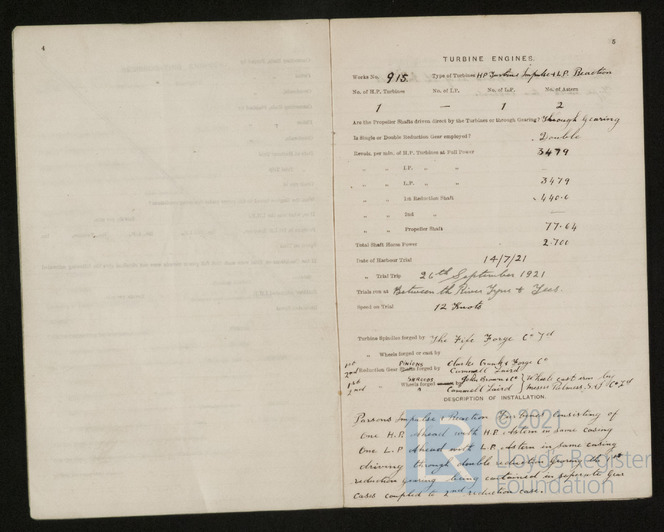 4
5
TURBINE ENGINES.
Works No. 915. Type of Turbines H.P. Turbine Impulse & L.P. Reaction
No. of H.P. Turbines No. of I.P. No. of L.P. No. of Astern
1 — 1 2
Are the Propeller Shafts driven direct by the Turbines or through Gearing? Through Gearing
Is Single or Double Reduction Gear employed? Double
Revols. per min. of H.P. Turbines at Full Power 3479
„ „ I.P. „ „
„ „ L.P. „ „ 3479
„ „ 1st Reduction Shaft 440.6
„ „ 2nd „
„ „ Propeller Shaft 77.64
Total Shaft Horse Power 2.700
Date of Harbour Trial 14/7/21
„ Trial Trip 26th September 1921
Trials run at Between th River Tyne & Tees.
Speed on Trial 12 Knots
Turbine Spindles forged by The Fife Forge Co Yd
„ Wheels forged or cast by
1st PINIONS Clarke Crank & Forge Co
2nd Reduction Gear Shafts forged by Cammell Laird
1st SPINDLES John Brown & Co } Wheels cast iron by
2nd „ Wheels forged by Cammell Laird } Messrs Palmers. S. & I Co Ltd
DESCRIPTION OF INSTALLATION.
Parsons Impulse & Reaction Turbines consisting of
One H.P. Ahead with H.P. Astern in same casing
One L.P Ahead with L.P. Astern in same casing
driving through double reduction gearing the 1st
reduction gearing being contained in separate Gear
Cases coupled to 2nd reduction case.
© 2021
Lloyds Register
Foundation